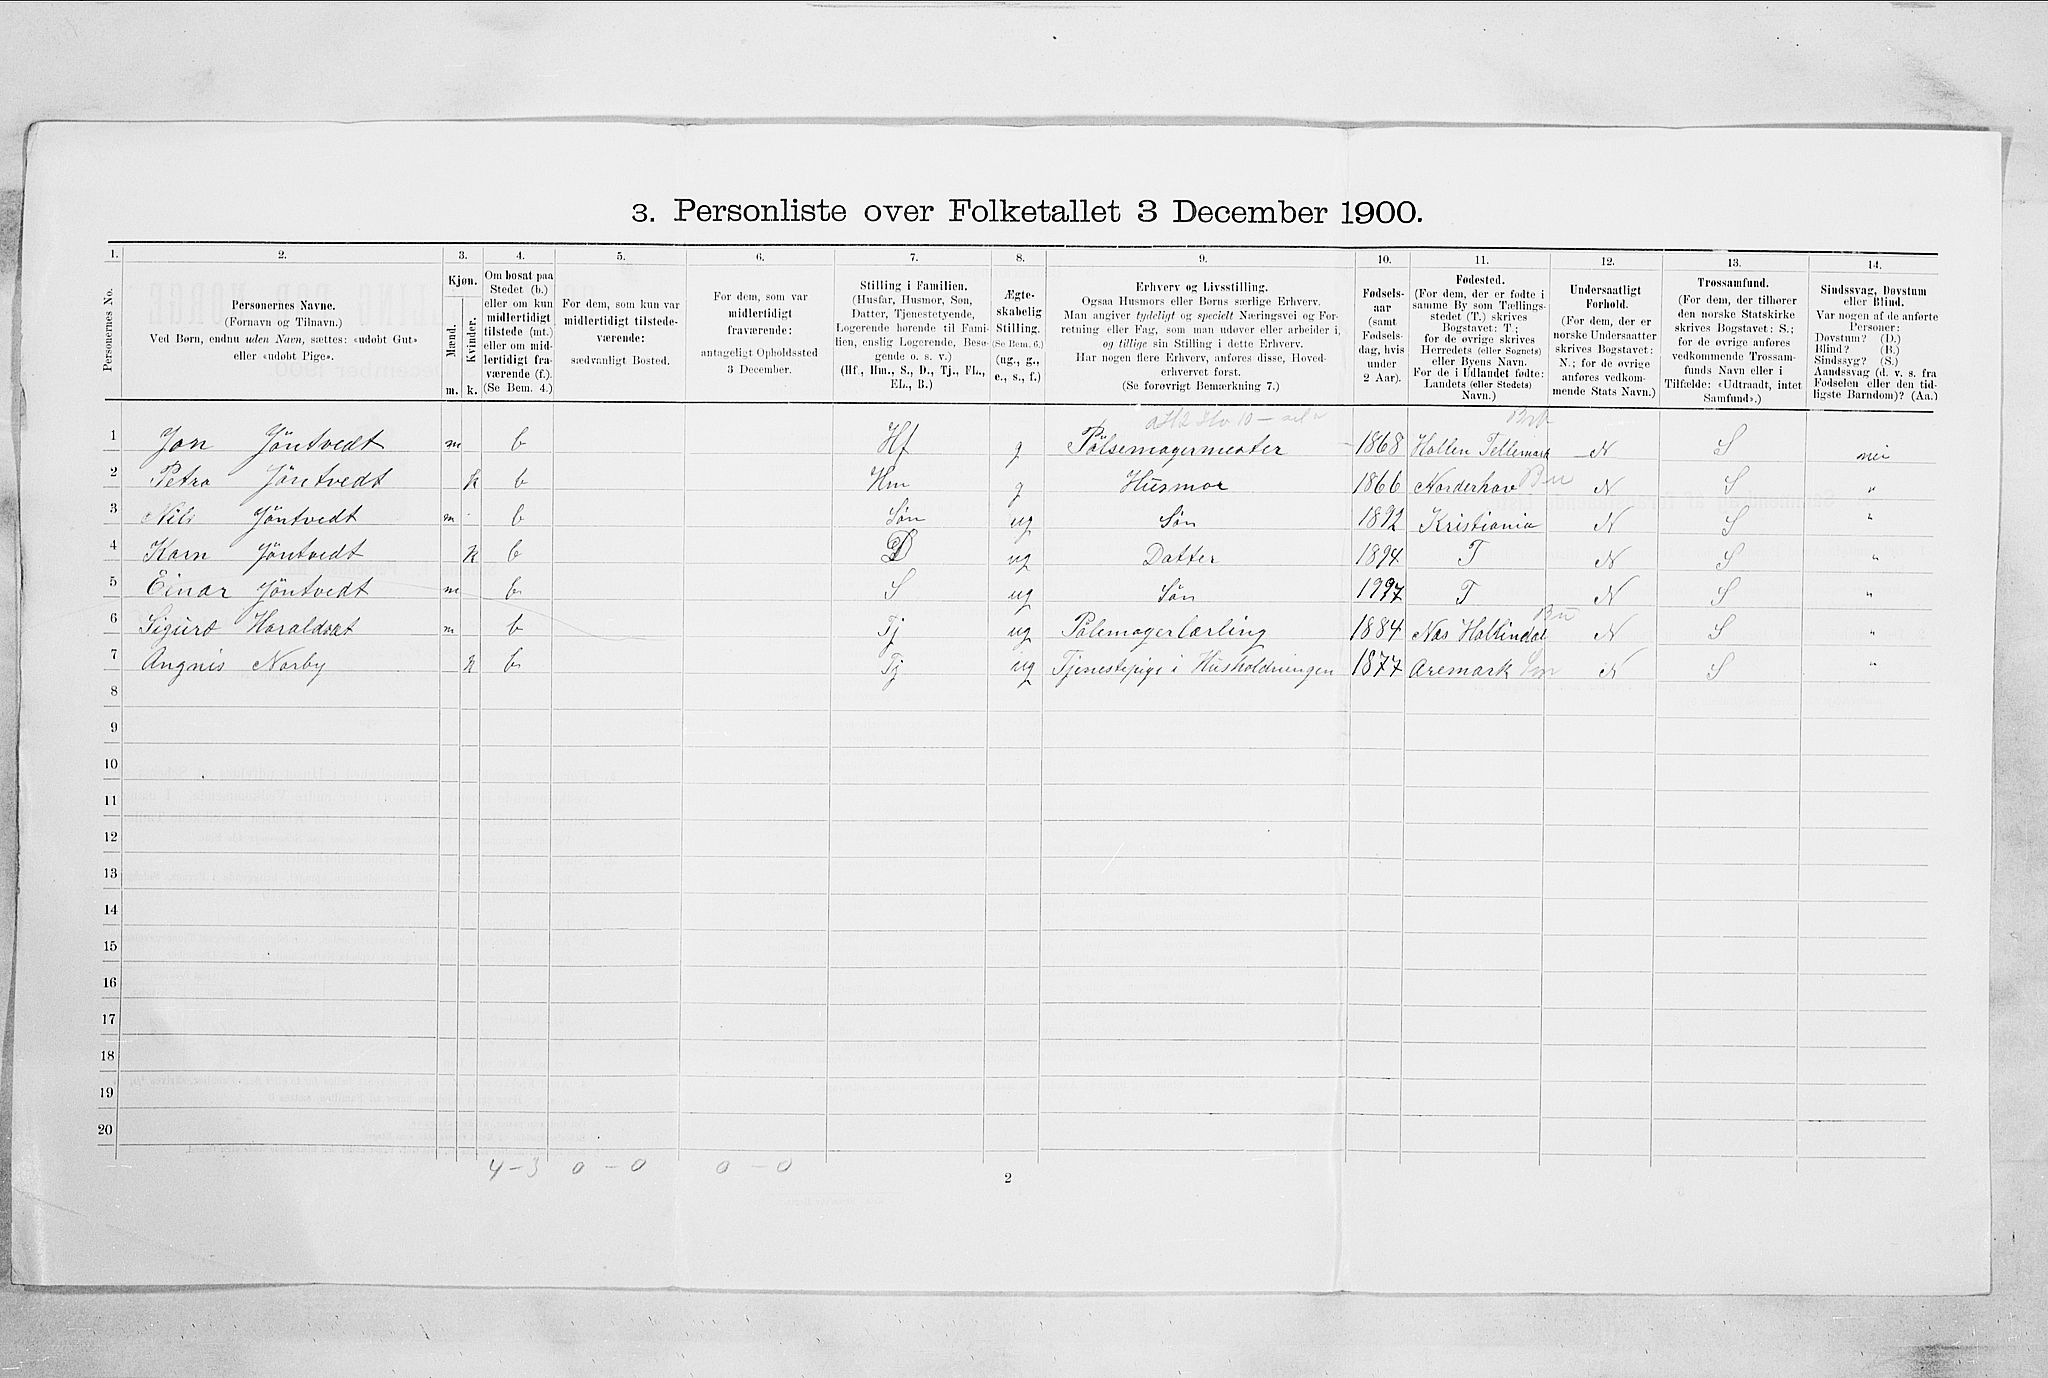 3. Personliste over Folketallet 3 December 1900.
1. 2. 3. 4. 5. 6. 7. 8. 9. 10. 11. 12. 13. 14.
Personernes No.
Personernes Navne.
(Fornavn og Tilnavn.)
Ved Børn, endnu uden Navn, sættes: «udøbt Gut»
eller «udøbt Pige».
Kjøn.
Mænd.
Kvinder.
m. k.
Om bosat paa
Stedet (b.)
eller om kun
midlertidigt
tilstede (mt.)
eller om mid-
lertidigt fra-
værende (f.).
(Se Bem. 4.)
For dem, som kun var
midlertidigt tilstede-
værende:
sædvanligt Bosted.
For dem, som var
midlertidigt
fraværende:
antageligt Opholdssted
3 December.
Stilling i Familien.
(Husfar, Husmor, Søn,
Datter, Tjenestetyende,
Logerende hørende til Fami-
lien, enslig Logerende, Besø-
gende o. s. v.)
(Hf., Hm., S., D., Tj., FL.,
EL., B.)
Ægte-
skabelig
Stilling.
(Se Bem. 6.)
(ug., g.,
e., s., f.)
Erhverv og Livsstilling.
Ogsaa Husmors eller Børns særlige Erhverv.
Man angiver tydeligt og specielt Næringsvei og For-
retning eller Fag, som man udøver eller arbeider i,
og tillige sin Stilling i dette Erhverv.
Har nogen flere Erhverv, anføres disse, Hoved-
erhvervet først.
(Se forøvrigt Bemærkning 7.)
Fødsels-
aar
(samt
Fødsels-
dag, hvis
under
2 Aar).
Fødested.
(For dem, der er fødte i
samme By som Tællings-
stedet (T.) skrives
Bogstavet: T.;
for de øvrige skrives
Herredets (eller Sognets)
eller Byens Navn.
For de i Udlandet fødte:
Landets (eller Stedets)
Navn.)
Undersaatligt
Forhold.
(For dem, der er
norske Undersaatter
skrives Bogstavet:
N.; for de øvrige
anføres vedkom-
mende Stats Navn.)
Trossamfund.
(For dem, der tilhører
den norske Statskirke
skrives Bogstavet: S.;
for de øvrige anføres
vedkommende Trossam-
funds Navn eller i
Tilfælde: «Udtraadt, intet
Samfund».)
Sindssvag, Døvstum
eller Blind.
Var nogen af de anførte
Personer:
Døvstum? (D.)
Blind? (B.)
Sindssyg? (S.)
Aandssvag (d. v. s. fra
Fødselen eller den tid-
ligste Barndom)? (Aa.)
1 Jon Jöntvedt m b Hf g Pölsemagermester 1868 Hollen Tellemark N S nei
2 Petra Jöntvedt k b Hm g Husmor 1866 Norderhov Bu N S "
3 Nils Jöntvedt m b Søn ug Søn 1892 Kristiania N S "
4 Karn Jöntvedt k b D ug Datter 1894 T N S "
5 Einar Jöntvedt m b S ug Søn 1897 T N S "
Bu
6 Sigurd Haraldset m b Tj ug Pölemagerlærling 1884 Nas Hallindal N S "
7 Angnis Norby k b Tj ug Tjenestepige i Husholdningen 1877 Aremark N S "
8
9
10
11
12
13
14
15
16
17
18
19
20
4 - 3 0 - 0 0 - 0
2